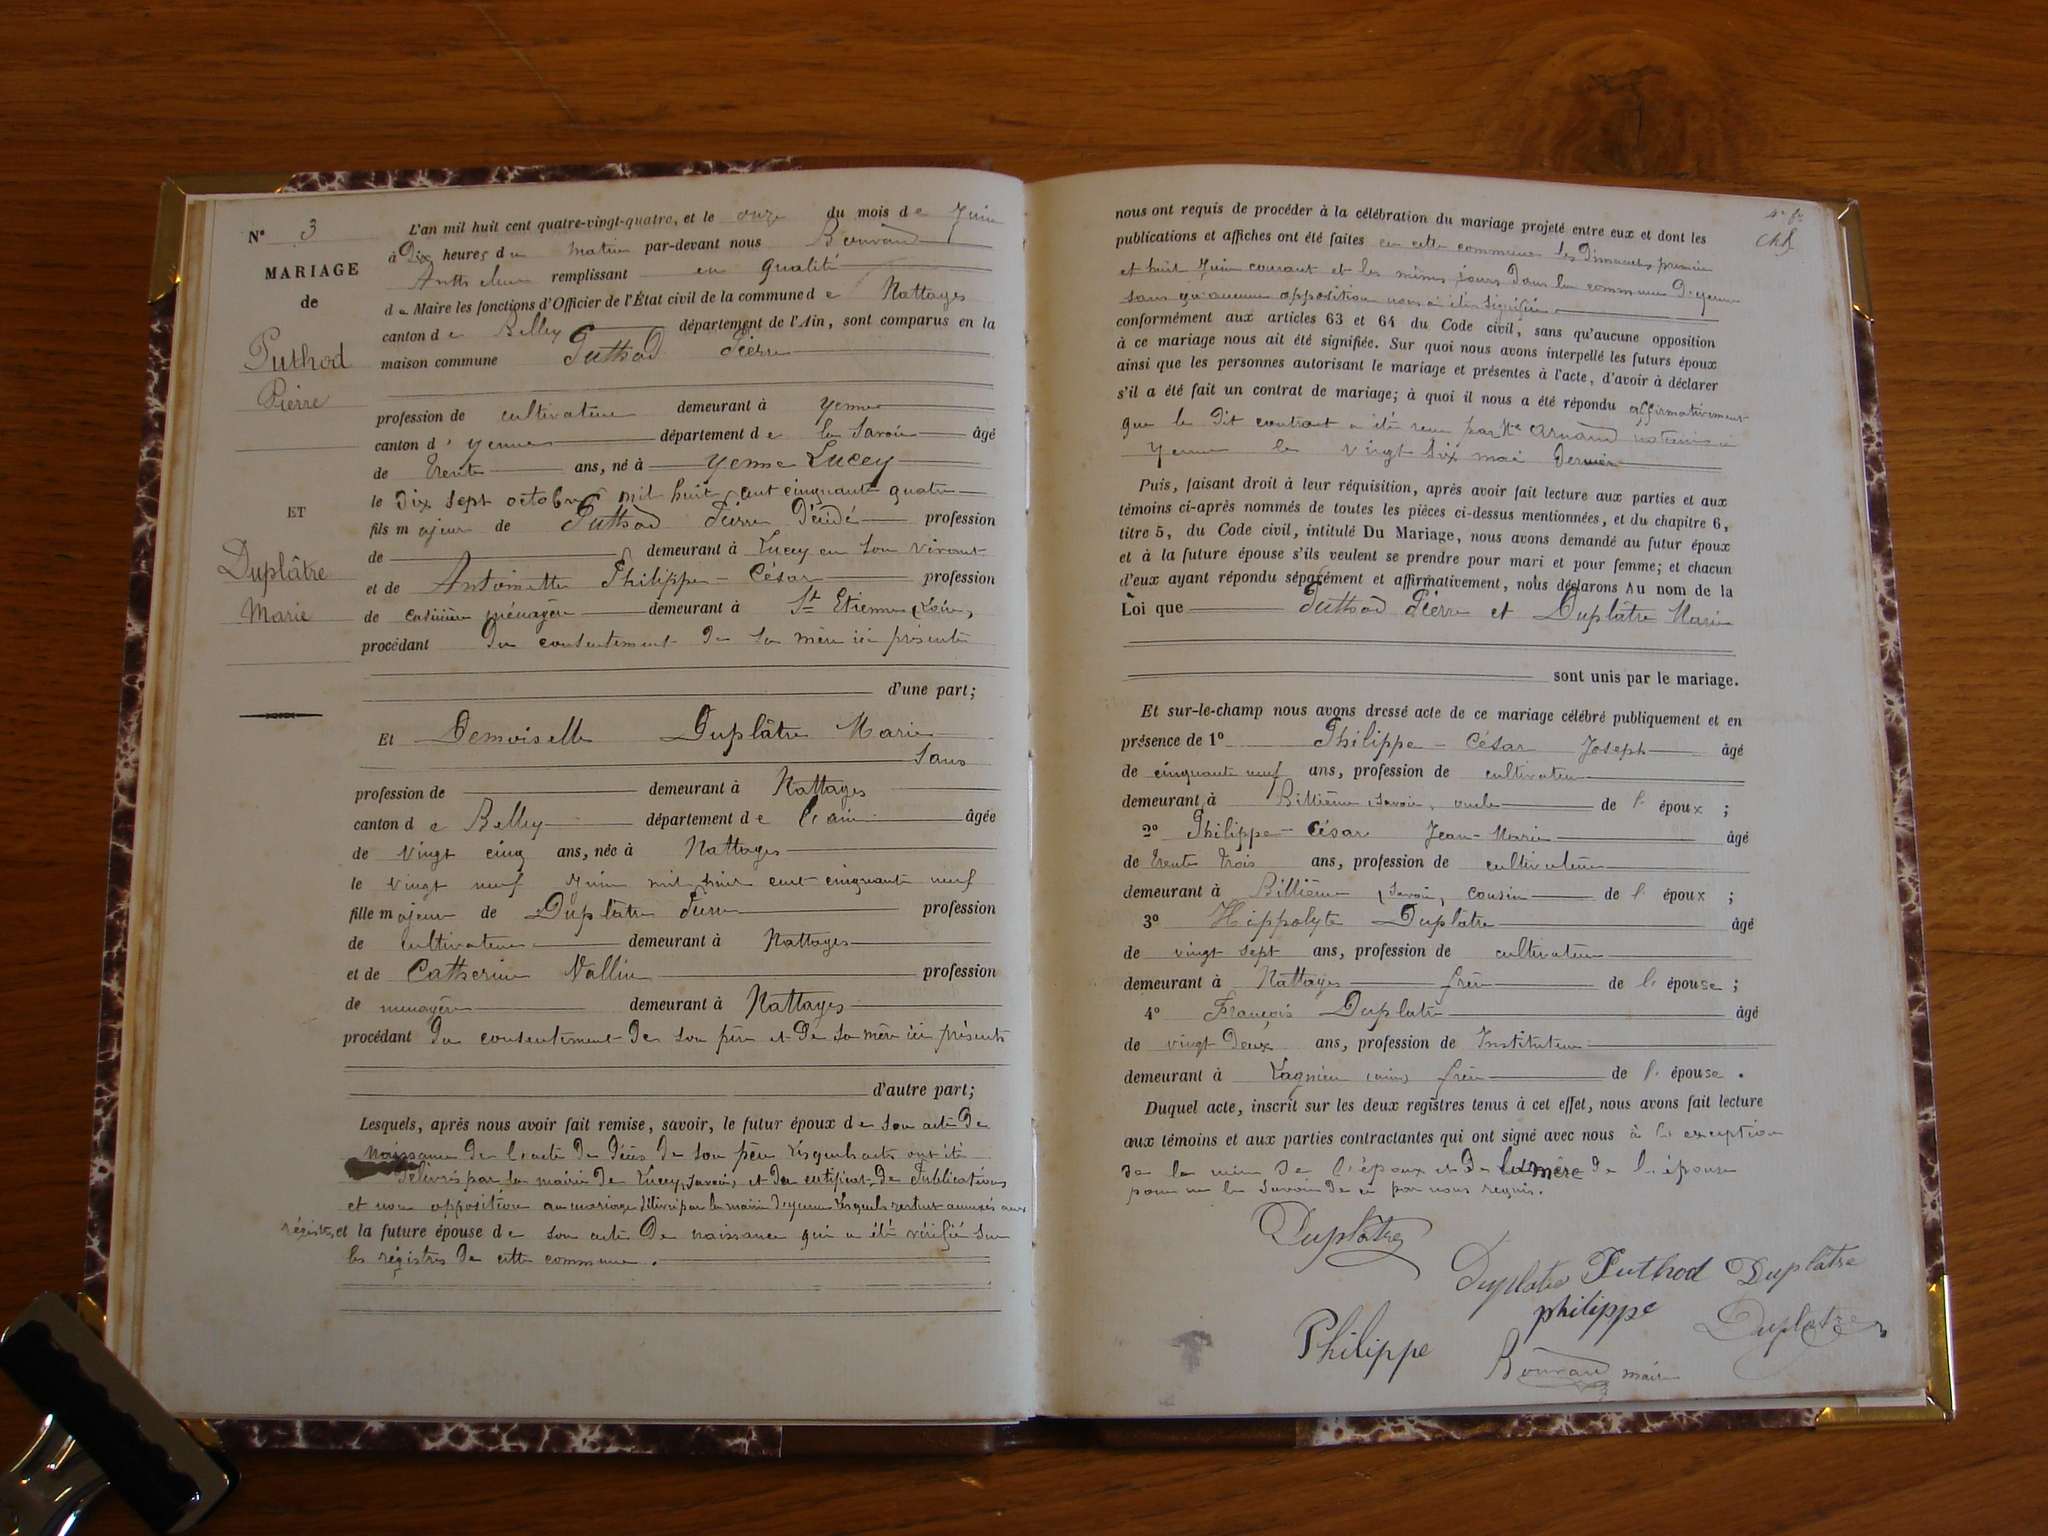 N° 3
MARIAGE
de
Puthod
Pierre
ET
Duplâtre
Marie
L'an mil huit cent quatre-vingt-quatre, et le onze du mois de Juin
à Dix heures du matin par-devant nous
remplissant en qualité
de Maire les fonctions d'Officier de l'État civil de la commune de Nattages
canton de Belley département de l'Ain, sont comparus en la
maison commune Puthod Pierre
profession de cultivateur demeurant à Yenne
canton d'Yenne département de la Savoie âgé
de trente ans, né à Yenne Lucey
le Dix sept octobre mil huit cent cinquante quatre
fils majeur de Puthod Pierre Décédé profession
de demeurant à Lucey en son vivant
et de Antoinette Philippe-César profession
de ménagère demeurant à St Etienne (Loire)
procédant du consentement de sa mère ici présente
d'une part;
Et Demoiselle Duplâtre Marie
Sans
profession de demeurant à Nattages
canton de Belley département de l'ain âgée
de vingt cinq ans, née à Nattages
le vingt neuf Juin mil huit cent cinquante neuf
fille majeure de Duplâtre Pierre profession
de cultivateur demeurant à Nattages
et de Catherine Vallin profession
de menagère demeurant à Nattages
procédant du consentement de son père et de sa mère ici présents
d'autre part;
Lesquels, après nous avoir fait remise, savoir, le futur époux de son acte de
Naissance de l'acte de décès de son père lesquels actes ont été
délivrés par la mairie de Lucey, Savoie, et du certificat de Publications
et non opposition au mariage délivré par la mairie d'yenne lesquels restent annexés aux
régistres, et la future épouse de son acte de naissance qui a été vérifié sur
les régistres de cette commune.
nous ont requis de procéder à la célébration du mariage projeté entre eux et dont les
publications et affiches ont été faites en cette commune les Dimanches premier
et huit Juin courant et les mêmes jours dans la commune D'yenne
sans qu'aucune opposition nous ai été signifiée.
conformément aux articles 63 et 64 du Code civil, sans qu'aucune opposition
à ce mariage nous ait été signifiée. Sur quoi nous avons interpellé les futurs époux
ainsi que les personnes autorisant le mariage et présentes à l'acte, d'avoir à déclarer
s'il a été fait un contrat de mariage; à quoi il nous a été répondu affirmativement
que le dit contrat a été reçu par Me Arnaud notaire à
Yenne le vingt six mai dernier
Puis, faisant droit à leur réquisition, après avoir fait lecture aux parties et aux
témoins ci-après nommés de toutes les pièces ci-dessus mentionnées, et du chapitre 6,
titre 5, du Code civil, intitulé Du Mariage, nous avons demandé au futur époux
et à la future épouse s'ils veulent se prendre pour mari et pour femme; et chacun
d'eux ayant répondu séparément et affirmativement, nous déclarons au nom de la
Loi que Puthod Pierre et Duplâtre Marie
sont unis par le mariage.
Et sur-le-champ nous avons dressé acte de ce mariage célébré publiquement et en
présence de 1° Philippe-César Joseph âgé
de cinquante neuf ans, profession de cultivateur
demeurant à Billième, Savoie, oncle de l'époux;
2° Philippe-César Jean-Marie âgé
de trente trois ans, profession de cultivateur
demeurant à Billième (Savoie, cousin de l'époux;
3° Hippolyte Duplâtre âgé
de vingt sept ans, profession de cultivateur
demeurant à Nattages frère de l'épouse;
4° François Duplatre âgé
de vingt Deux ans, profession de Instituteur
demeurant à Lagnieu (ain) frère de l'épouse.
Duquel acte, inscrit sur les deux registres tenus à cet effet, nous avons fait lecture
aux témoins et aux parties contractantes qui ont signé avec nous à l'exception
de la mère de l'époux et de la mère de l'épouse
pour ne le savoir de ce par nous requis.
Duplâtre
Duplatre Puthod Duplâtre
philippe
Duplatre
Philippe
maire